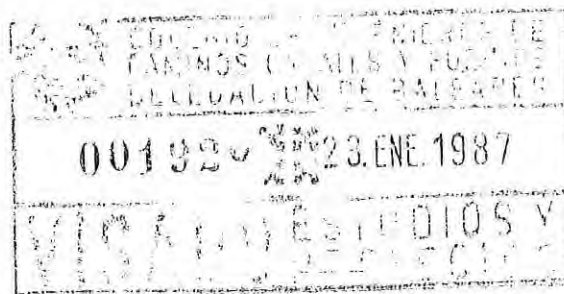 COLEGIO DE INGENIEROS DE
CAMINOS CANALES Y PUERTOS
DELEGACION DE BALEARES
23.ENE.1987
VISADO ESTUDIOS Y